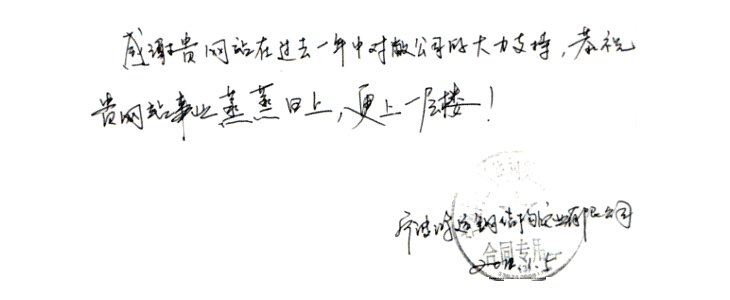 感谢贵网站在过去一年中对敝公司的大力支持，恭祝
贵网站事业蒸蒸日上，更上一层楼！
宁波 钢结构 有限公司
合同专用
1.5